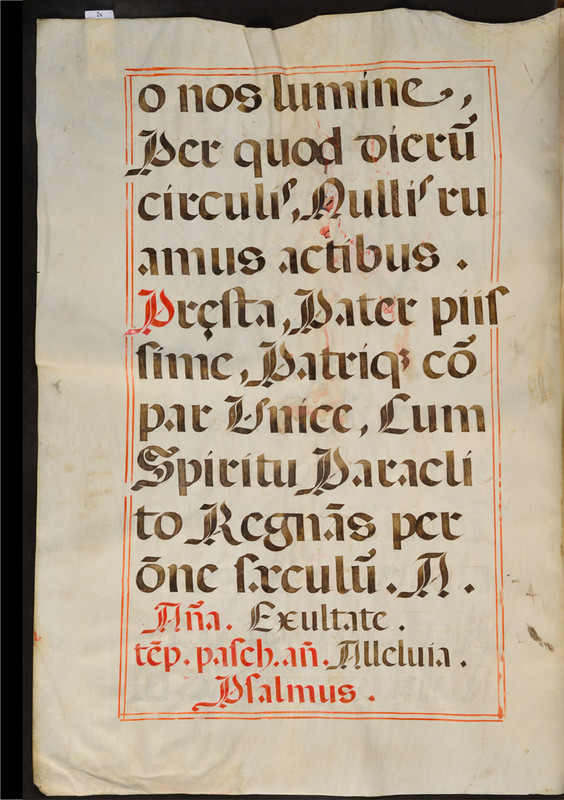 2v
o nos lumine,
Per quod dierũ
circulis, Nullis ru
amus actibus .
Pręsta, Pater piis
sime, Patriqꝫ cõ
par Unice, Cum
Spiritu Paracli
to Regnãs per
õne sæculũ . A .
Añа. Exultate .
tẽp. pasch. añ. Alleluia .
Psalmus .